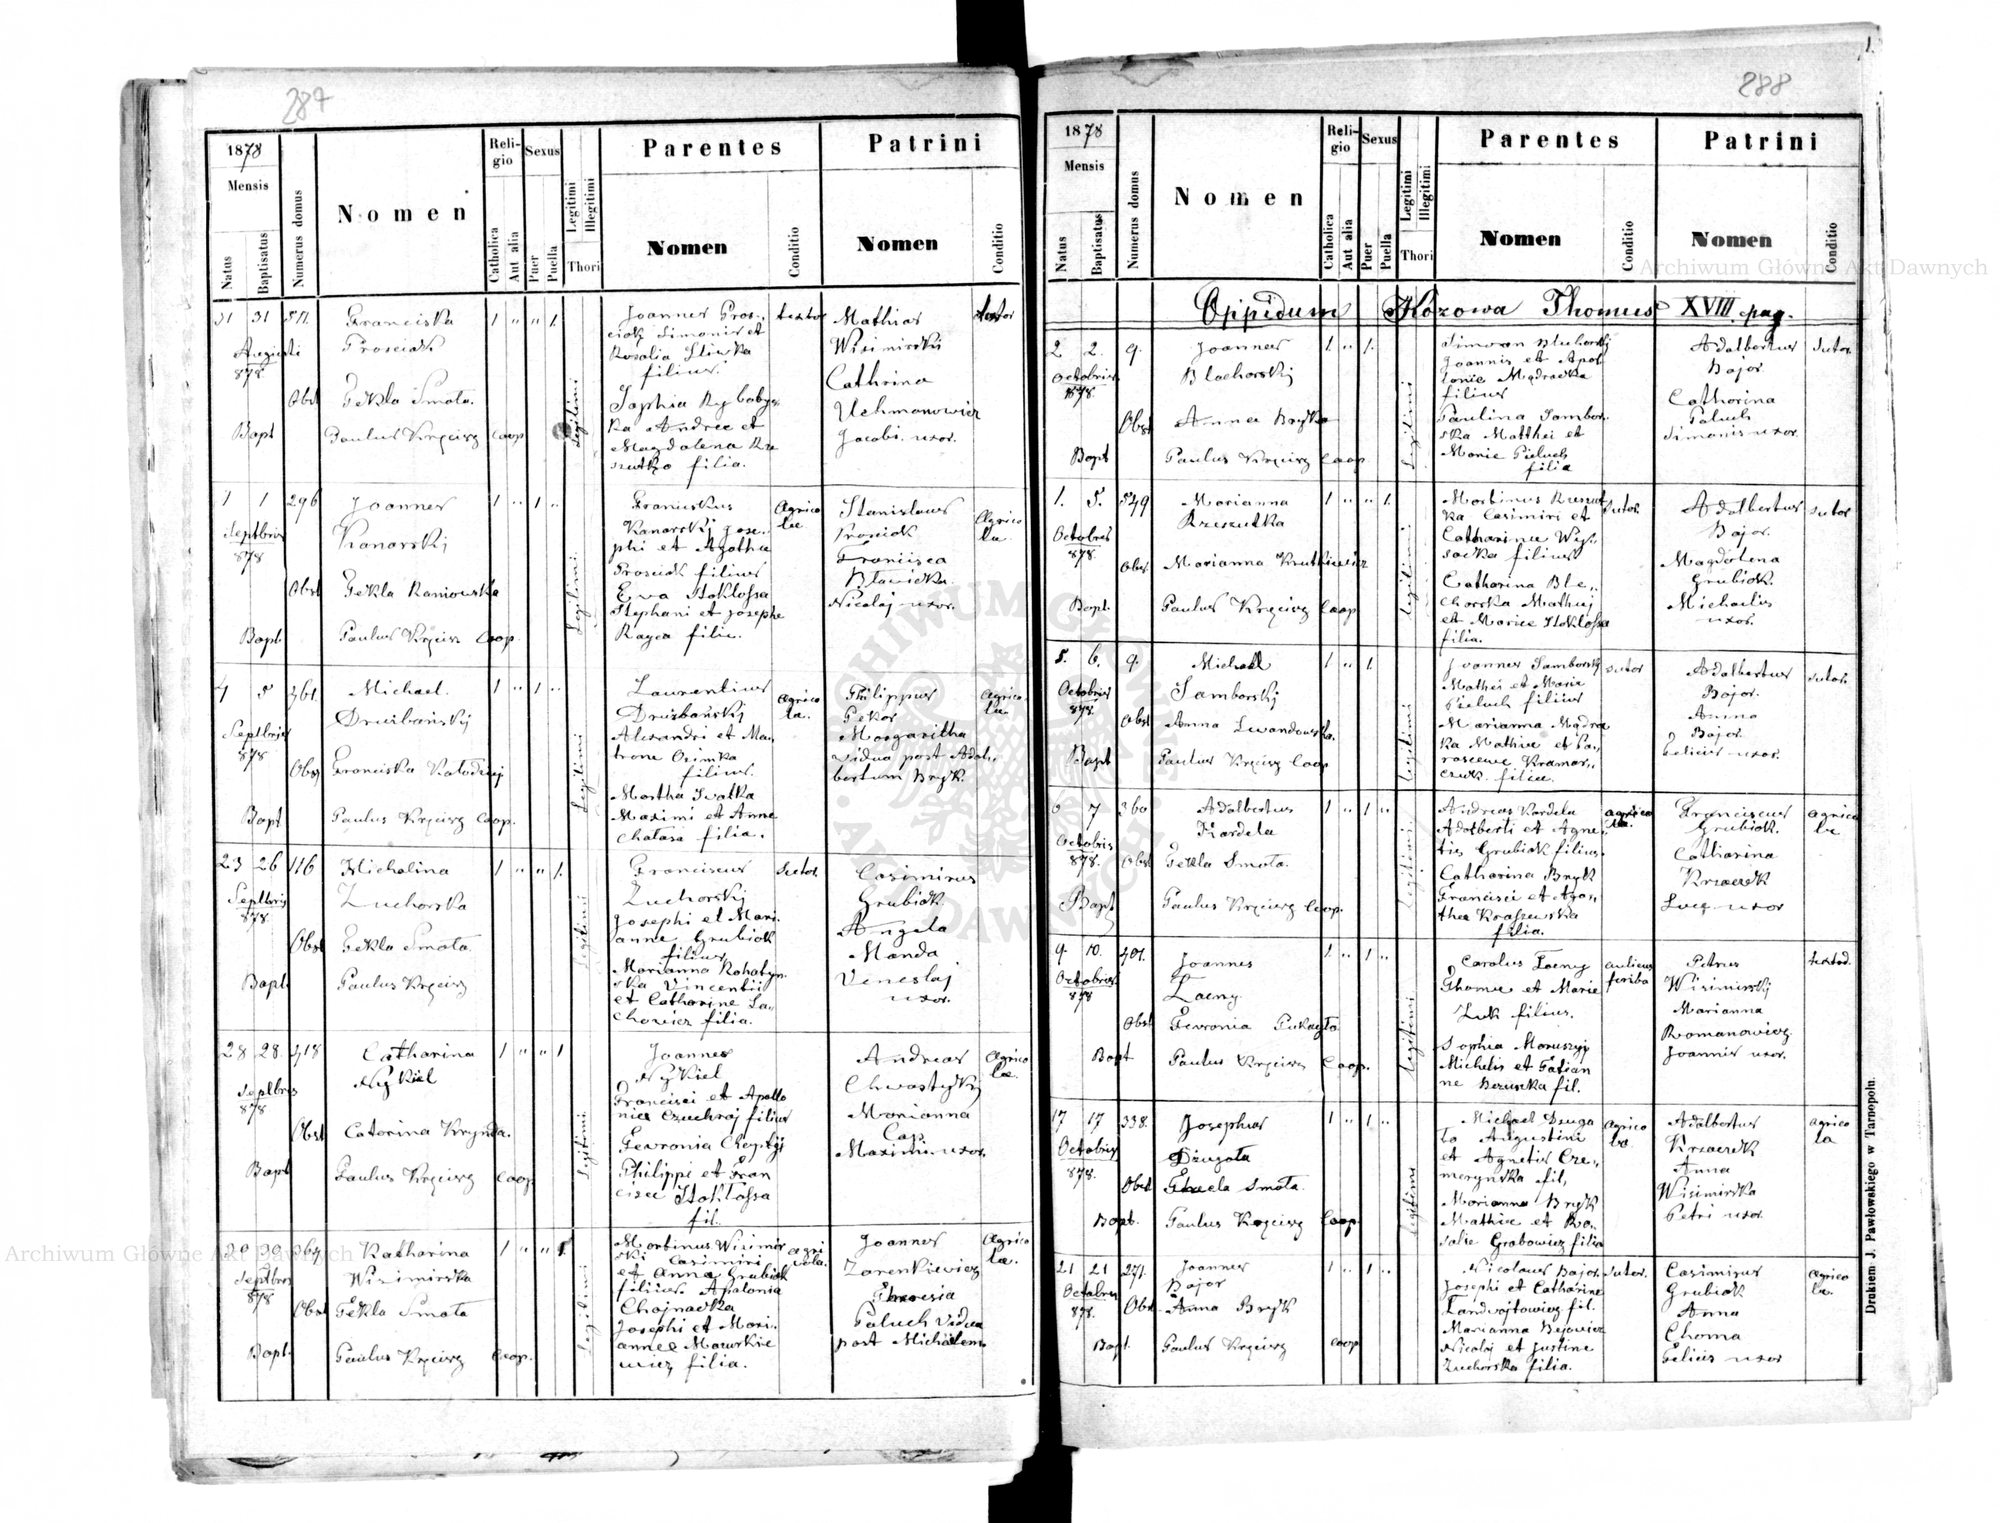 287
1878
Mensis
Natus
Baptisatus
Numerus domus
Nomen
Religio
Catholica
Aut alia
Sexus
Puer
Puella
Legitimi
Illegitimi
Thori
Parentes
Nomen
Conditio
Patrini
Nomen
Conditio
31 31
Augusti
878
Franciska
Prosciak
1 " " 1.
Obst Tekla Smota.
Bapt Paulus Kręcisz Coop
Legitimi
Joannes Pros„
ciak Simonis et
Rosalia
filius.
Sophia Rybobyc
ka Andree et
Magdalena Rze
szutko filia.
textor
Mathias
Wisimirskij
Cathrina
Uchmanowicz
Jacobi uxor.
textor
1 1 296
Septbris
878
Joannes
Kanarskij
1 " 1 "
Obst Tekla Raniowska
Bapt. Paulus Kręcisz Coop.
Legitimi
Franciskus
Kanarskij Jose„
phi et Agatha
Prosciak filius
Eva Stoklossa
Stephani et Josepha
Rayca filia.
Agrico
la
Stanislaus
Prosciak
Francisca
Bławicka
Nicolaj uxor.
Agrico
la.
4 5 361.
Septbris
878
Michael.
Drużbańskij
1 " 1 "
Obst Franciska Kołodziej
Bapt Paulus Kręcisz Coop.
Legitimi
Laurentius
Drużbańskij
Alexandri et Ma„
trone Osimka
filius.
Martha Swatka
Maximi et Anne
Chatasa filia.
Agrico
la.
Philippus
Pekar
Margaritha
vidua post Adal„
bertum Bryk.
Agrico
la.
23 26 116
Septbris
878
Michalina
Zuchorska
1 " " 1.
Obst Tekla Smota.
Bapt. Paulus Kręcisz
Legitimi
Franciscus
Zuchorskij
Josephi et Mari„
anne Grubiak
filius
Marianna Rohatyn„
ska Vincentii
et Catharine La„
chowicz filia.
Sutor.
Casimirus
Grubiak
Angela
Manda
Veneslaj
uxor.
28 28. 418
Septbris
878
Catharina
Nykiel
1 " " 1
Obst Catarina Krynda.
Bapt Paulus Kręcisz Coop
Legitimi
Joannes
Nykiel
Francisci et Apollo
nia Czuchraj filius
Fevronia Cheptij
Philippi et Fran
cisce Stoklossa
fil.
Andreas
Chwastykij
Marianna
Cap
Maximi uxor.
Agrico
la.
30 30. 364
Septbris
878
Katharina
Wisimirska
1 " " 1.
Obst Tekla Smota
Bapt. Paulus Kręcisz Coop.
Legitimi
Martinus Wisimir
ski Casimiri
et Anna Grubiak
filius Apalonia
Chojnacka
Josephi et Mari„
anne Mazurkie
wicz filia.
agri
cola.
Joannes
Zarenkiewicz
Theresia
Paluch Vidua
post Michaelem
Agrico
la.
1.
288
1878
Mensis
Natus
Baptisatus
Numerus domus
Nomen
Religio
Catholica
Aut alia
Sexus
Puer
Puella
Legitimi
Illegitimi
Thori
Parentes
Nomen
Conditio
Patrini
Nomen
Conditio
Oppidum Kozowa Thomus XVIII. pag.
2. 2. 9.
Octobris
1878.
Joannes
Blachorskij
1. " 1.
Obst Anna Bryka
Bapt Paulus Kręcisz Coop
Legitimi
Simeon Bluhorskij
Joannis et Apol
lonie Mądracka
filius
Paulina Sambor„
ska Matthei et
Marie Pieluch
filia
Adalbertus
Bajor.
Catharina
Paluch
Simonis uxor.
Sutor.
1. 5. 549
Octobris
878.
Marianna
Rzeszutka
1 " " 1.
Obst Marianna Krutkiewicz
Bapt. Paulus Kręcisz Coop
Legitimi
Martinus Rzeszut
ka Casimiri et
Catharina Wys„
socka filius
Catharina Ble„
chorska Mathej
et Marie Stoklossa
filia.
Sutor
Adalbertus
Bajor.
Magdalena
Grubiak.
Michaelis
uxor.
sutor
5. 6. 9.
Octobris
878.
Michael
Samborskij
1 " 1.
Obst Anna Lewandowska.
Bapt Paulus Kręcisz Coop
Legitimi
Joannes Samborskij
Mathei et Maria
Pieluch filius
Marianna Mądrac
ka Mathie et Pa„
rascewe Kramar„
czuk. filia.
sutor
Adalbertus
Bajor.
Anna
Bajor.
Felicis uxor.
sutor.
6 7 360
Octobris
878.
Adalbertus
Kardela
1 " 1 "
Obst Tekla Smota.
Bapt Paulus Kręcisz Coop.
Legitimi
Andreas Kardela
Adalberti et Agne„
tis Grubiak filius.
Catharina Bryk
Francisci et Aga„
thea Kraszewska
filia.
agrico
la.
Franciscus
Grubiak.
Catharina
Krzaczek
Luca uxor
agrico
la
9. 10. 401.
Octobris
878
Joannes
Łaczny.
1. " 1 "
Obst Fevronia Pukayło.
Bapt Paulus Kręcisz Coop.
Legitimi
Carolus Łaczny
Thome et Marie
Luk filius.
Sophia Maruszyj
Michelis et Tatian
ne Bezuszka fil.
aulicus
scriba
Petrus
Wisimirskij
Marianna
Romanowicz
Joannis uxor.
textod.
17 17 338.
Octobris
878.
Josephus
Dzugała
1 " 1 "
Obst Thecla Smota.
Bapt. Paulus Kręcisz Coop.
Legitimi
Michael Dzuga
ła Augustini
et Agnetis Cze„
meryńska fil,
Marianna Bryk
Mathie et Ro„
salie Grabowicz filia
agrico
la.
Adalbertus
Krzaczek
Anna
Wisimirska
Petri uxor.
agrico
la
21 21 271.
Octobris
878.
Joannes
Bajor
1 " 1 "
Obst Anna Bryk
Bapt. Paulus Kręcisz coop
Nicolaus Bajor.
Josephi et Catharine
Landwojtowicz fil.
Marianna Bejowicz
Nicolaj et Justine
Zuchorska filia.
sutor.
Casimirus
Grubiak
Anna
Choma
Felicis uxor
agrico
la.
Drukiem J. Pawłowskiego w Tarnopolu.
Archiwum Główne Akt Dawnych
Archiwum Główne Akt Dawnych
ARCHIWUM GŁÓWNE AKT DAWNYCH